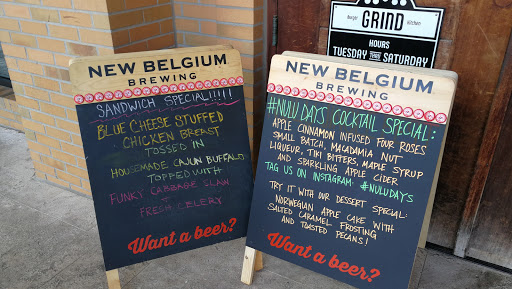 burger GRIND kitchen
HOURS
TUESDAY THRU SATURDAY
NEW BELGIUM
BREWING
SANDWICH SPECIAL!!!!!
BLUE CHEESE STUFFED
CHICKEN BREAST
TOSSED IN
HOUSEMADE CAJUN BUFFALO
TOPPED WITH
FUNKY CABBAGE SLAW
+
FRESH CELERY
Want a beer?
NEW BELGIUM
BREWING
#NULU DAYS COCKTAIL SPECIAL:
APPLE CINNAMON INFUSED FOUR ROSES
SMALL BATCH, MACADAMIA NUT
LIQUEUR, TIKI BITTERS, MAPLE SYRUP
AND SPARKLING APPLE CIDER
TAG US ON INSTAGRAM: #NULUDAYS
TRY IT WITH OUR DESSERT SPECIAL:
NORWEGIAN APPLE CAKE WITH
SALTED CARAMEL FROSTING
AND TOASTED PECANS!
Want a beer?